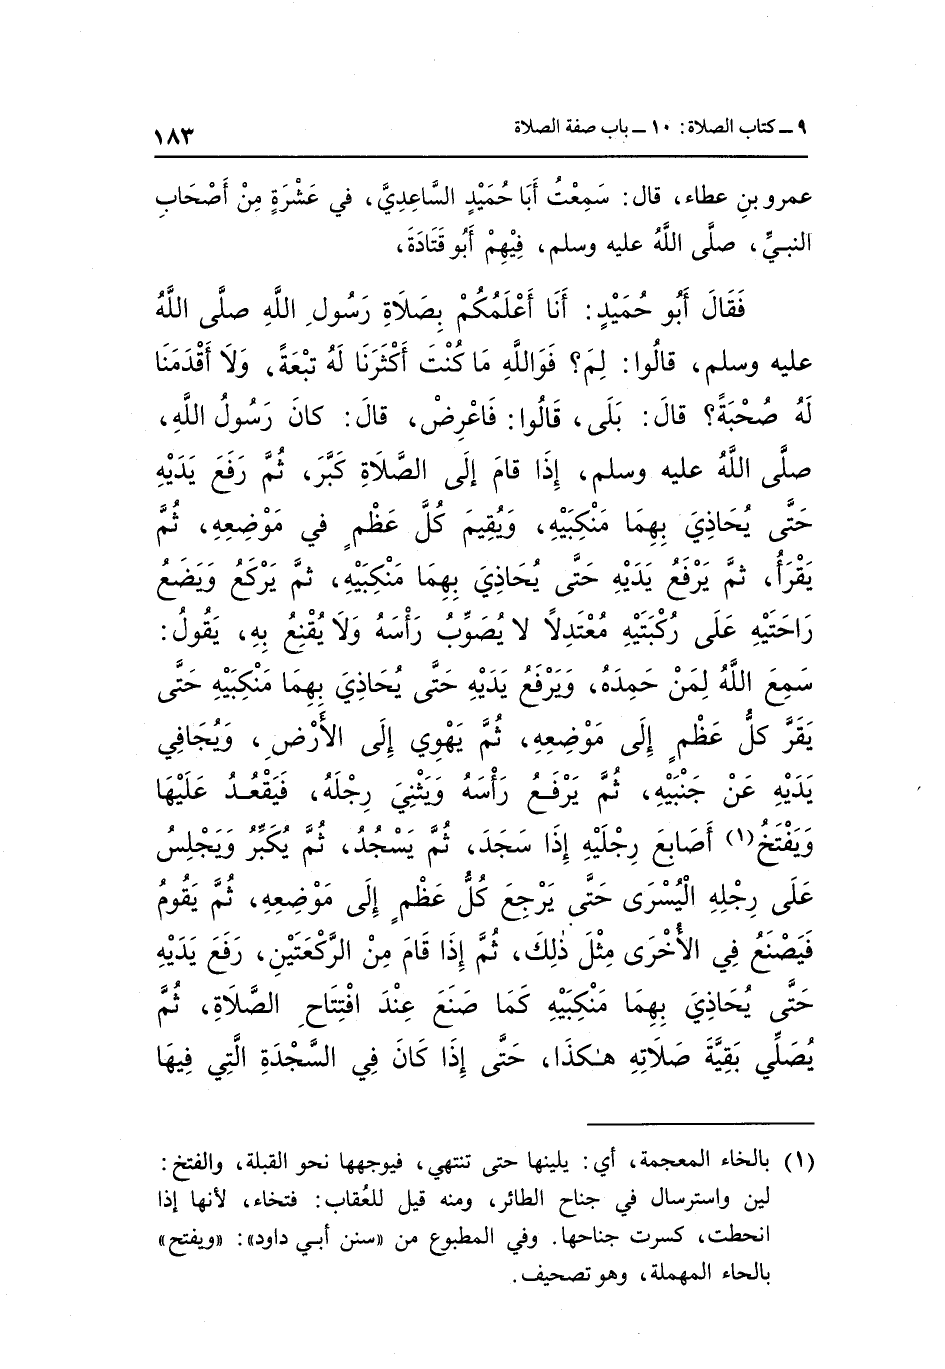 ٩ ـ كتاب الصلاة: ١٠ ـ باب صفة الصلاة
١٨٣
عمرو بنِ عطاء، قال: سَمِعْتُ أَبَا حُمَيْدٍ السَّاعِدِيَّ، في عَشْرَةٍ مِنْ أَصْحَابِ
النبيِّ، صلَّى اللَّهُ عليه وسلم، فِيْهِمْ أَبُو قَتَادَةَ،
فَقَالَ أَبُو حُمَيْدٍ: أَنَا أَعْلَمُكُمْ بِصَلَاةِ رَسُولِ اللَّهِ صلَّى اللَّهُ
عليه وسلم، قالُوا: لِمَ؟ فَوَاللَّهِ مَا كُنْتَ أَكْثَرَنَا لَهُ تبْعَةً، وَلَا أَقْدَمَنَا
لَهُ صُحْبَةً؟ قالَ: بَلَى، قَالُوا: فَاعْرِضْ، قالَ: كانَ رَسُولُ اللَّهِ،
صلَّى اللَّهُ عليه وسلم، إِذَا قامَ إِلَى الصَّلَاةِ كَبَّرَ، ثُمَّ رَفَعَ يَدَيْهِ
حَتَّى يُحَاذِيَ بِهِمَا مَنْكِبَيْهِ، وَيُقِيمَ كُلَّ عَظْمٍ في مَوْضِعِهِ، ثُمَّ
يَقْرَأُ، ثمَّ يَرْفَعُ يَدَيْهِ حَتَّى يُحَاذِيَ بِهِمَا مَنْكِبَيْهِ، ثمَّ يَرْكَعُ وَيَضَعُ
رَاحَتَيْهِ عَلَى رُكْبَتَيْهِ مُعْتَدِلاً لا يُصَوِّبُ رَأْسَهُ وَلَا يُقْنِعُ بِهِ، يَقُولُ:
سَمِعَ اللَّهُ لِمَنْ حَمِدَهُ، وَيَرْفَعُ يَدَيْهِ حَتَّى يُحَاذِيَ بِهِمَا مَنْكِبَيْهِ حَتَّى
يَقَرَّ كلُّ عَظْمٍ إِلَى مَوْضِعِهِ، ثُمَّ يَهْوِي إِلَى الأَرْضِ، وَيُجَافِي
يَدَيْهِ عَنْ جَنْبَيْهِ، ثُمَّ يَرْفَعُ رَأْسَهُ وَيَثْنِيَ رِجْلَهُ، فَيَقْعُدُ عَلَيْهَا
وَيَفْتَخُ(١) أَصَابِعَ رِجْلَيْهِ إِذَا سَجَدَ، ثُمَّ يَسْجُدُ، ثُمَّ يُكَبِّرُ وَيَجْلِسُ
عَلَى رِجْلِهِ الْيُسْرَى حَتَّى يَرْجِعَ كُلُّ عَظْمٍ إِلَى مَوْضِعِهِ، ثُمَّ يَقُومُ
فَيَصْنَعُ فِي الأُخْرَى مِثْلَ ذٰلِكَ، ثُمَّ إِذَا قَامَ مِنْ الرَّكْعَتَيْنِ، رَفَعَ يَدَيْهِ
حَتَّى يُحَاذِيَ بِهِمَا مَنْكِبَيْهِ كَمَا صَنَعَ عِنْدَ افْتِتَاحِ الصَّلَاةِ، ثُمَّ
يُصَلِّي بَقِيَّةَ صَلَاتِهِ هٰكَذَا، حَتَّى إِذَا كَانَ فِي السَّجْدَةِ الَّتِي فِيهَا
(١) بالخاء المعجمة، أي: يلينها حتى تنتهي، فيوجهها نحو القبلة، والفتخ:
لين واسترسال في جناح الطائر، ومنه قيل للعُقاب: فتخاء، لأنها إذا
انحطت، كسرت جناحها. وفي المطبوع من «سنن أبي داود»: «ويفتح»
بالحاء المهملة، وهو تصحيف.